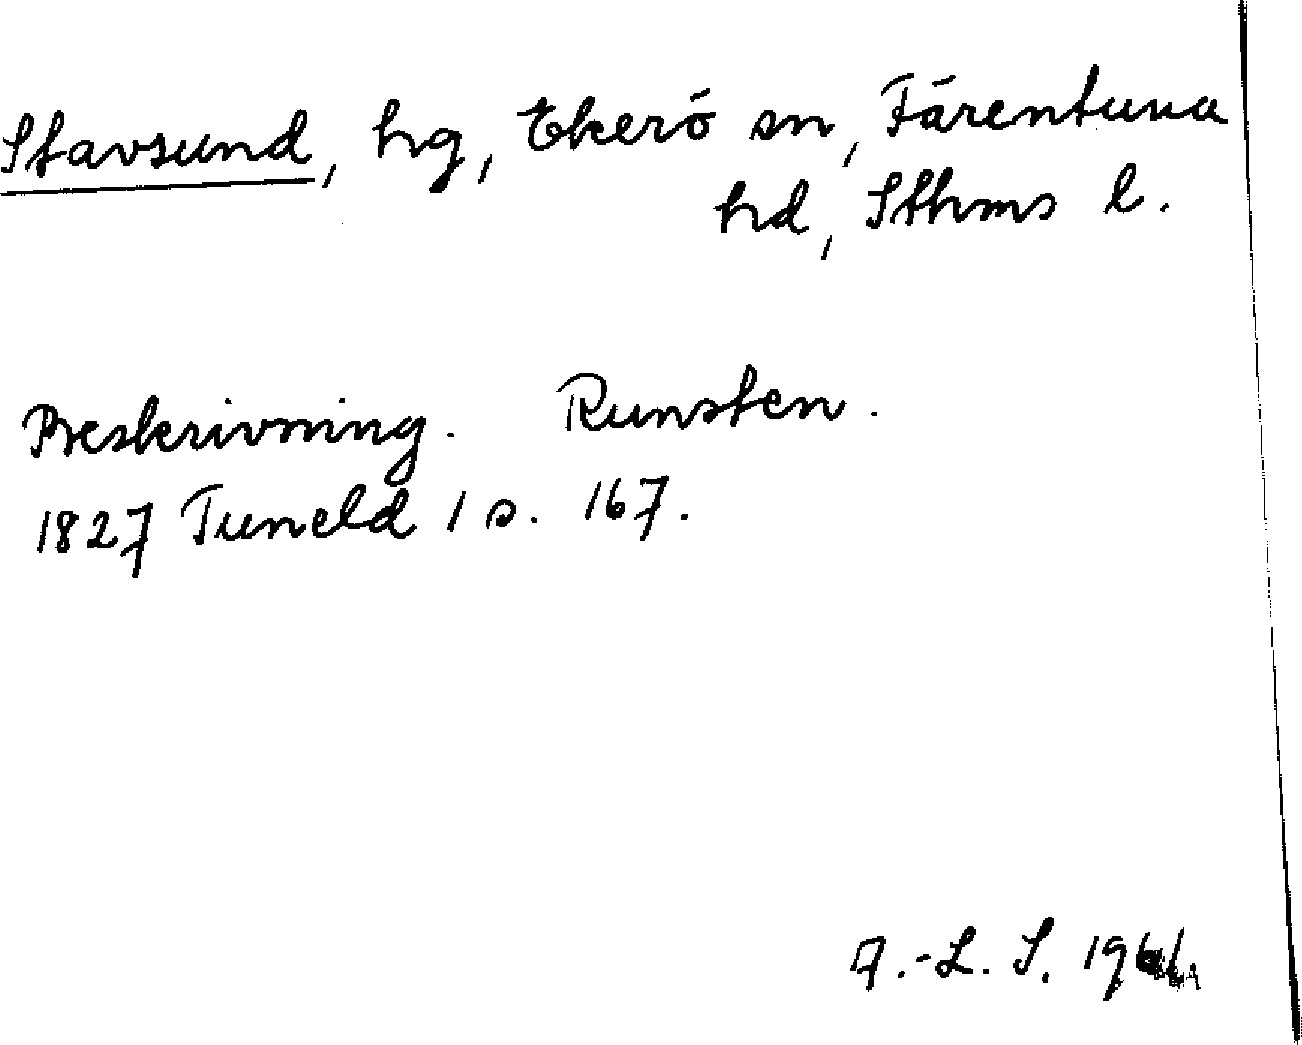 Stavsund, hg, Ekerö sn, Färentuna
hd, Sthms l.
Beskrivning. Runsten.
1827 Tuneld 1 s. 167.
A.-L. S.